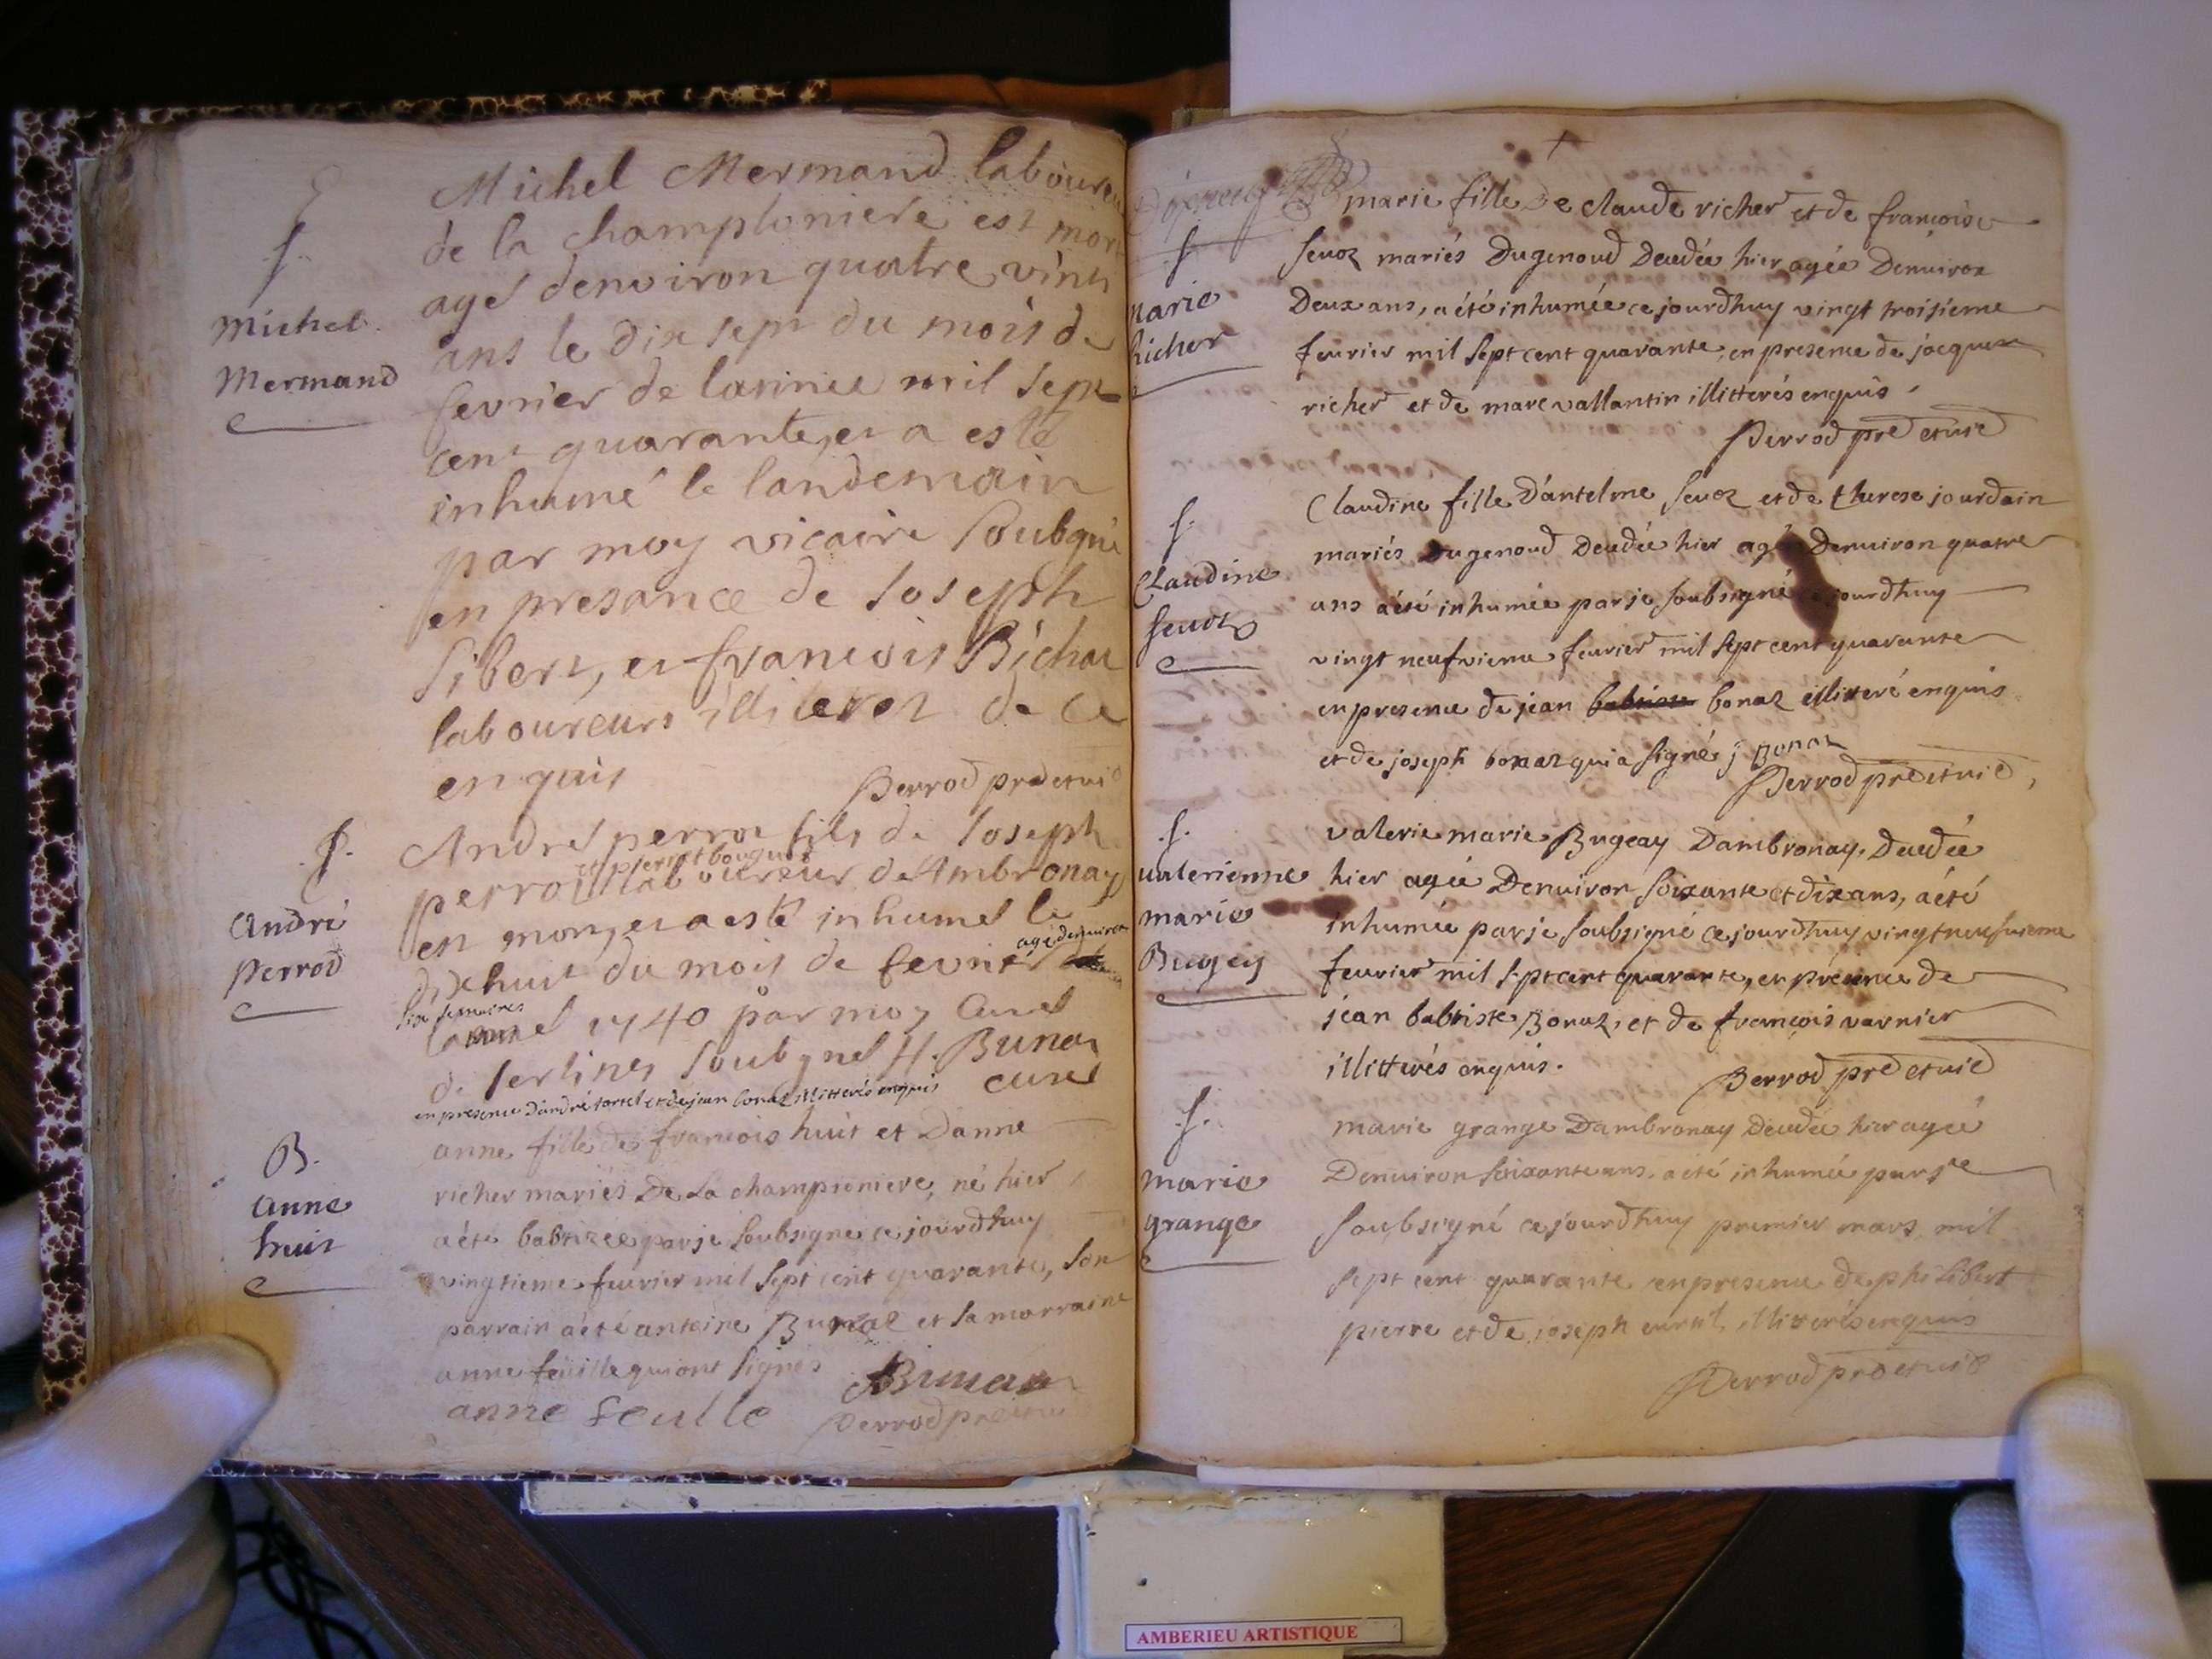 f.
Michel
Mermand
Michel Mermand laboureu
de la champloniere est mort
agé denviron quatre vints
ans le dix sept du mois de
fevrier de lannee mil sept
cent quarante, et a esté
inhumé le landemain
par moy vicaire soubgné
en presance de Ioseph
Sibert, et francois Bichat
laboureurs illiteres de ce
enquis
Perrod pre et vic
f.
André
Perrod
André perrot fils de Ioseph
et pierret bouquet
perrot laboureur dAmbronay
est mort, et a esté inhumé le
dixhuit du mois de fevrier
agé denviron
six semaines
lanné 1740 par moy Curé
de serlines soubgné H. Bunaz
curé
en presence dandré tortel et de jean bonaz illitterés enquis
B.
anne
huit
anne fille de francois huit et Danne
richer mariés De la championiere, né hier
a été babtizée par je soubsigné ce jourdhuy
vingtieme feurier mil sept cent quarante, son
parrain a été antoine Bunaz et sa marraine
anne feüille qui ont signés
Bunaz
anne feulle
Perrod pre et vic
f.
marie
richer
marie fille De claude richer et de francoise
seuoz mariés Dugenoud Deudée hier agée Denuiron
Deux ans, a été inhumée ce jourdhuy vingt troisieme
feurier mil sept cent quarante, en presence de jacques
richer et de marc vallantin illitterés enquis
Perrod pre et vic
f.
Claudine
seuoz
Claudine fille Dantelme seuoz et de therese jourdain
mariés Dugenoud Deudée hier agée Denuiron quatre
ans a été inhumée par je soubsigné ce jourdhuy
vingt neufvieme feurier mil sept cent quarante
en presence de jean babtiste bonaz illiteré enquis
et de joseph bonaz qui a signé j Bonaz
Perrod pre et vic
f.
ualerienne
marie
Bugey
valerie marie Bugeay Dambronay, Deudée
hier agée Denuiron soixante et dix ans, a été
inhumée par je soubsigné ce jourdhuy vingt neufuieme
feurier mil sept cent quarante, en présence de
jean babtiste Bonaz, et de françois varnier
illitterés enquis.
Perrod pre et vic
f.
marie
grange
marie grange Dambronay Deudée hier agée
Denuiron soixante ans, a été inhumée par je
soubsigné ce jourdhuy premier mars mil
sept cent quarante en presence de philibert
pierre et de joseph curtil, illiterés enquis
Perrod pre et vic
AMBERIEU ARTISTIQUE